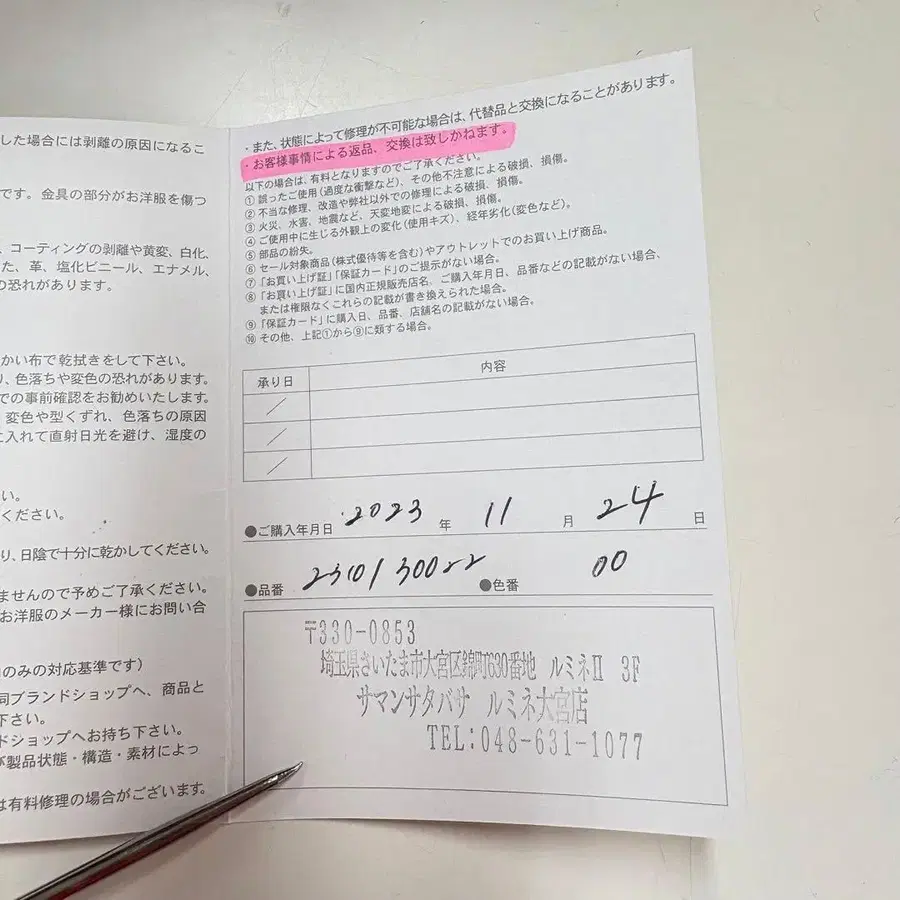 した場合には剥離の原因になるこ
です。金具の部分がお洋服を傷つ
、コーティングの剥離や黄変、白化
た、革、塩化ビニール、エナメル、
の恐れがあります。
かい布で乾拭きをして下さい。
り、色落ちや変色の恐れがあります。
での事前確認をお勧めいたします。
変色や型くずれ、色落ちの原因
に入れて直射日光を避け、湿度の
い。
ください。
り、日陰で十分に乾かしてください。
ませんので予めご了承ください。
お洋服のメーカー様にお問い合
のみの対応基準です）
同ブランドショップへ、商品と
下さい。
ドショップへお持ち下さい。
製品状態・構造・素材によっ
は有料修理の場合がございます。
・また、状態によって修理が不可能な場合は、代替品と交換になることがあります。
・お客様事情による返品、交換は致しかねます。
以下の場合は、有料となりますのでご了承ください。
① 誤ったご使用(過度な衝撃など)、その他不注意による破損、損傷。
② 不当な修理、改造や弊社以外での修理による破損、損傷。
③ 火災、水害、地震など、天変地変による破損、損傷。
④ ご使用中に生じる外観上の変化(使用キズ)、経年劣化(変色など)。
⑤ 部品の紛失。
⑥ セール対象商品(株式優待等を含む)やアウトレットでのお買い上げ商品。
⑦ 「お買い上げ証」「保証カード」のご提示がない場合。
⑧ 「お買い上げ証」に国内正規販売店名、ご購入年月日、品番などの記載がない場合、
または権限なくこれらの記載が書き換えられた場合。
⑨ 「保証カード」に購入日、品番、店舗名の記載がない場合。
⑩ その他、上記①から⑨に類する場合。
承り日 内容
／
／
／
●ご購入年月日 2023 年 11 月 24 日
●品番 230130022 ●色番 00
〒330-0853
埼玉県さいたま市大宮区錦町630番地 ルミネⅡ 3F
サマンサタバサ ルミネ大宮店
TEL:048-631-1077